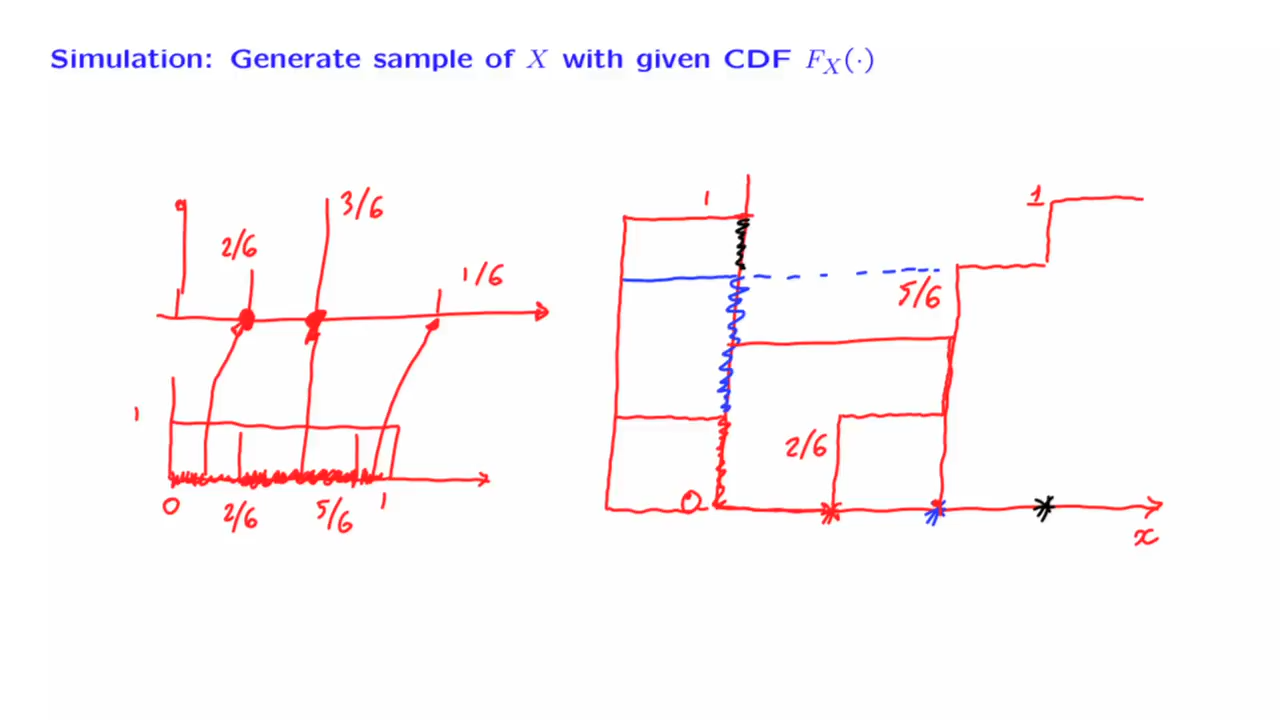 Simulation: Generate sample of X with given CDF F_X(·)
2/6
3/6
1/6
1
0
2/6
5/6
1
1
1
5/6
2/6
0
x